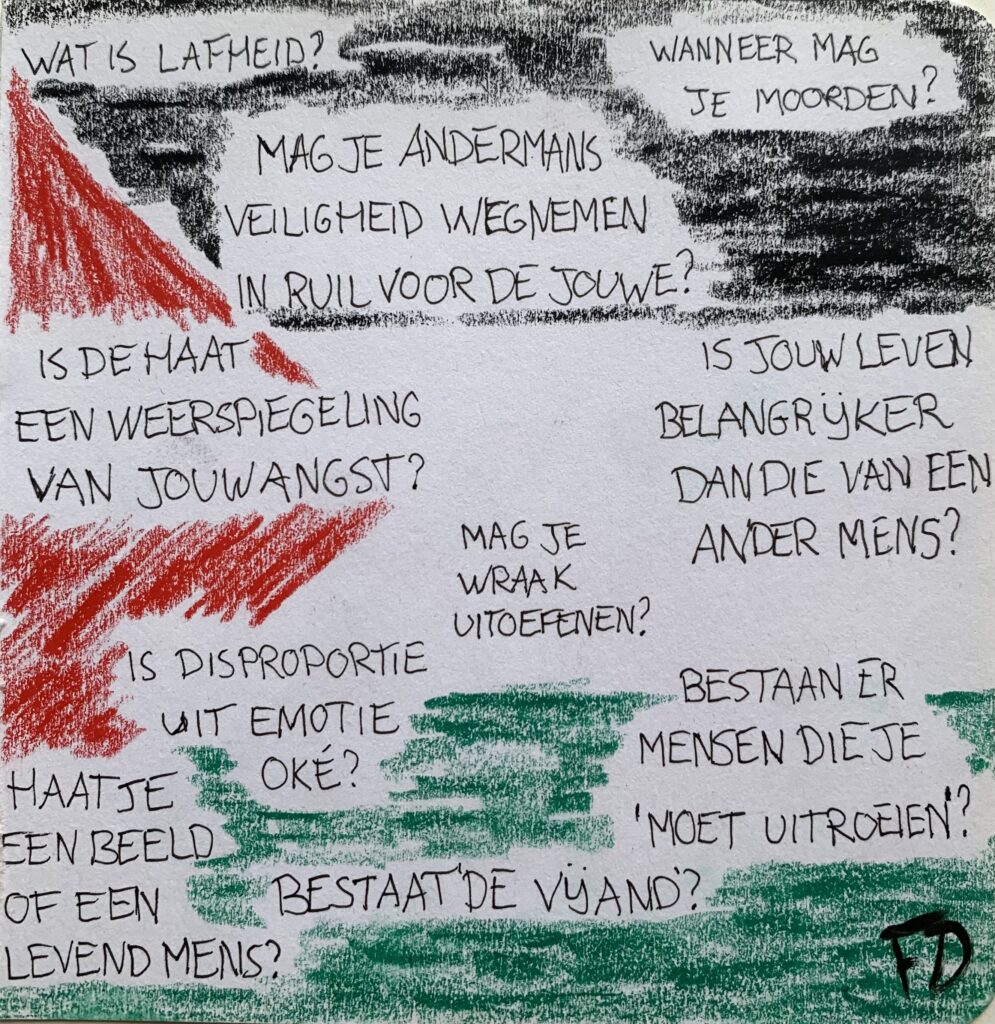 WAT IS LAFHEID?
WANNEER MAG
JE MOORDEN?
MAG JE ANDERMANS
VEILIGHEID WEGNEMEN
IN RUIL VOOR DE JOUWE?
IS DE HAAT
EEN WEERSPIEGELING
VAN JOUW ANGST?
IS JOUW LEVEN
BELANGRIJKER
DAN DIE VAN EEN
ANDER MENS?
MAG JE
WRAAK
UITOEFENEN?
IS DISPROPORTIE
UIT EMOTIE
OKÉ?
BESTAAN ER
MENSEN DIE JE
'MOET UITROEIEN'?
HAAT JE
EEN BEELD
OF EEN
LEVEND MENS?
BESTAAT 'DE VIJAND'?
FD